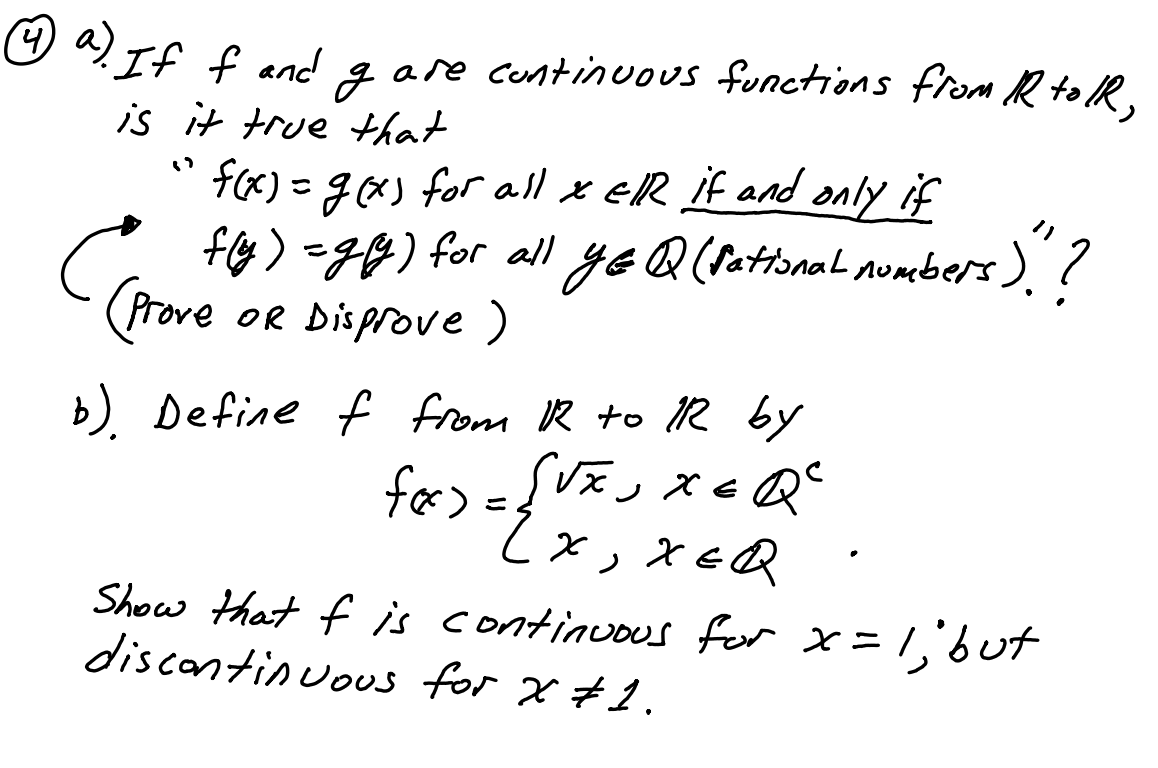 ④ a). If f and g are continuous functions from ℝ to ℝ,
is it true that
"f(x) = g(x) for all x ∈ ℝ if and only if
f(y) = g(y) for all y ∈ ℚ (rational numbers)."?
(Prove OR Disprove)
b). Define f from ℝ to ℝ by
f(x) = { √x, x ∈ ℚᶜ
x, x ∈ ℚ .
Show that f is continuous for x = 1, but
discontinuous for x ≠ 1.